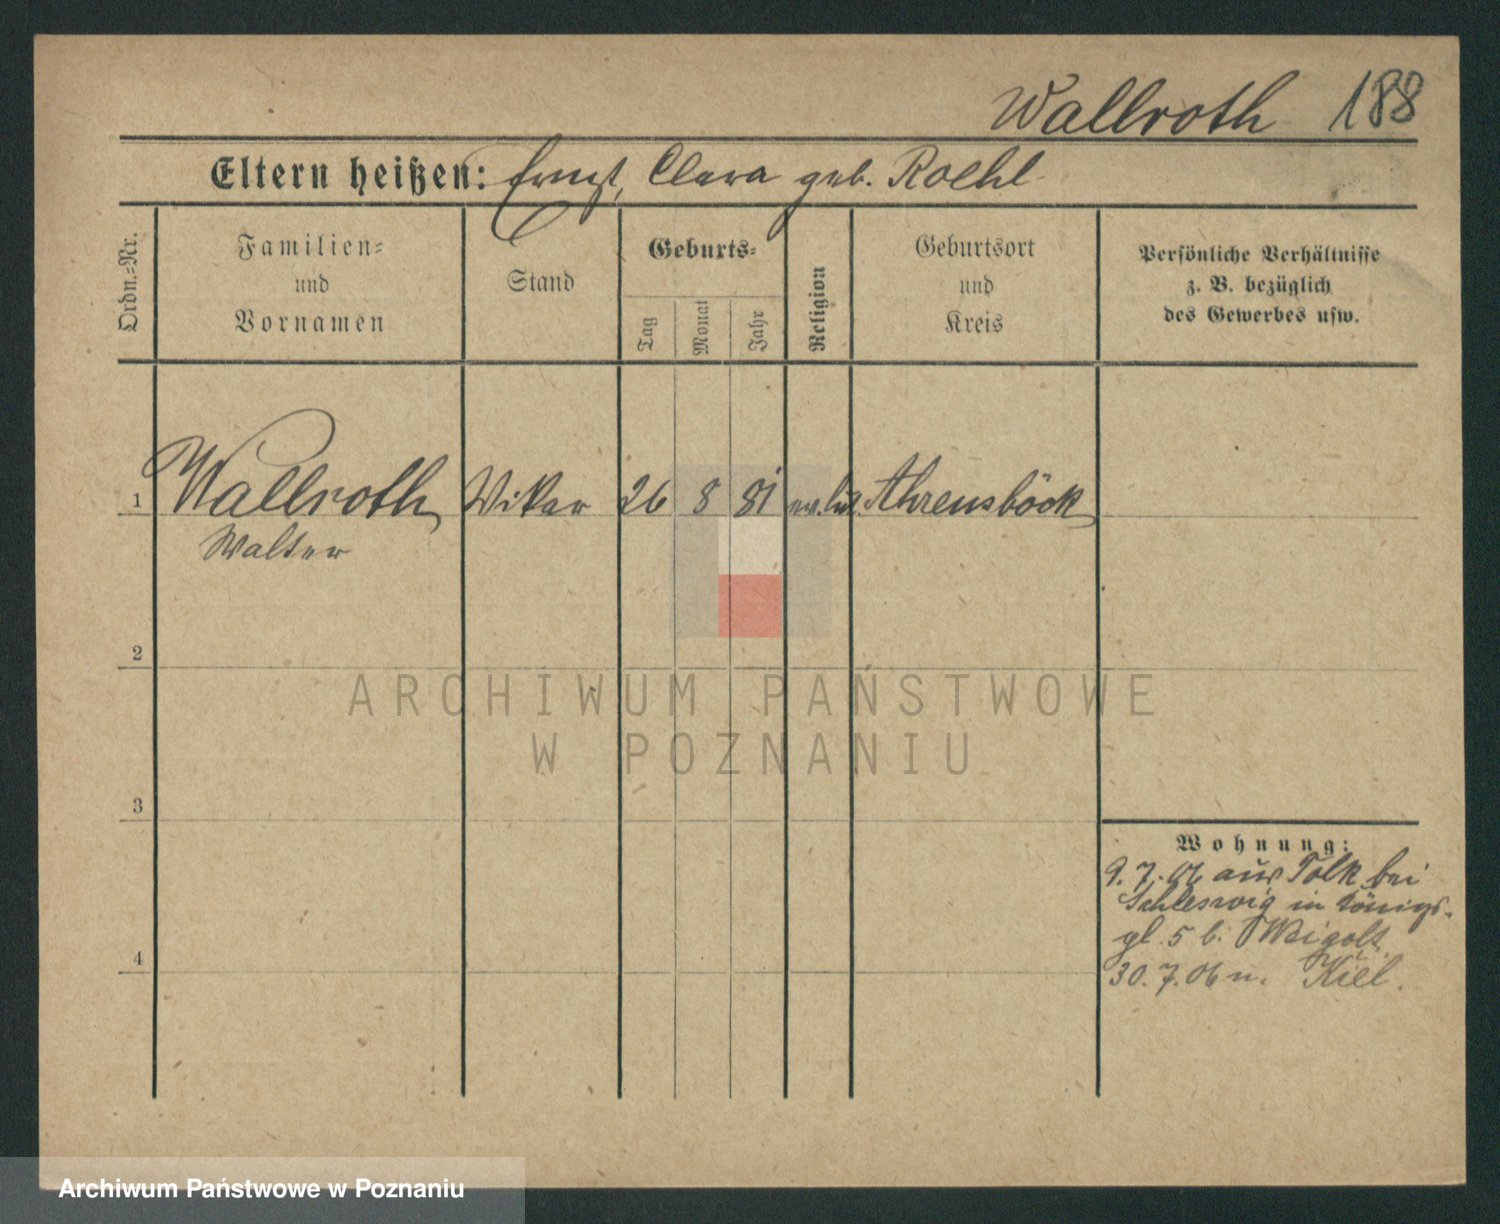 Wallroth 188
Eltern heißen: Ernst, Clara geb. Roehl
Ordn.-Nr.
Familien-
und
Vornamen
Stand
Geburts-
Tag
Monat
Jahr
Religion
Geburtsort
und
Kreis
Persönliche Verhältnisse
z. B. bezüglich
des Gewerbes usw.
1 Wallroth, Vikar 26 8 81 ev. luth. Ahrensböck
Walter
2
ARCHIWUM PAŃSTWOWE
W POZNANIU
3
Wohnung:
9.7.06 aus Tolk bei
Schleswig in Königs-
pl. 5 b. Weigolt
4
30.7.06 n. Kiel.
Archiwum Państwowe w Poznaniu